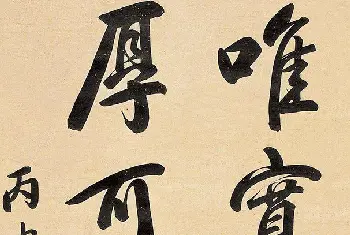 唯寬
厚可
丙